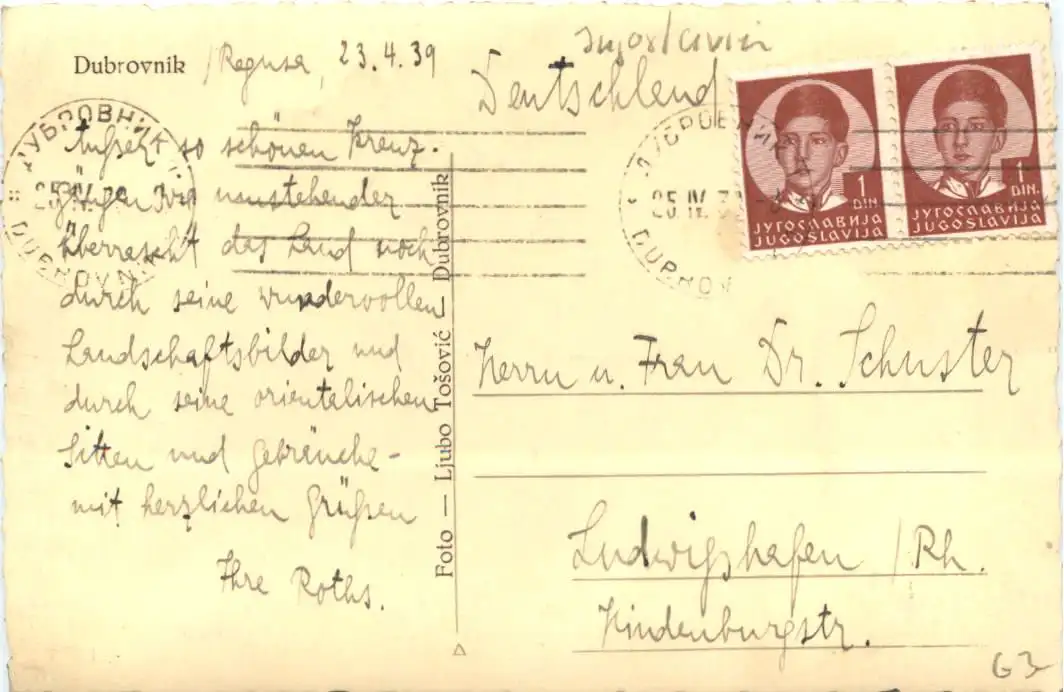 Dubrovnik /Ragusa, 23.4.39
so schönen Kreuz-
gängen wie umstehender
überrascht das Land noch
durch seine wundervollen
Landschaftsbilder und
durch seine orientalischen
Sitten und Gebräuche -
mit herzlichen Grüßen
Ihre Roths.
Foto — Ljubo Tošović — Dubrovnik
Jugoslavien
Deutschland
ДУБРОВНИК
25.IV.39
DUBROVNIK
ДУБРОВНИК
25.IV.39
DUBROVNIK
1
DIN.
ЈУГОСЛАВИЈА
JUGOSLAVIJA
1
DIN.
ЈУГОСЛАВИЈА
JUGOSLAVIJA
Herrn u. Frau Dr. Schuster
Ludwigshafen /Rh.
Hindenburgstr.
63